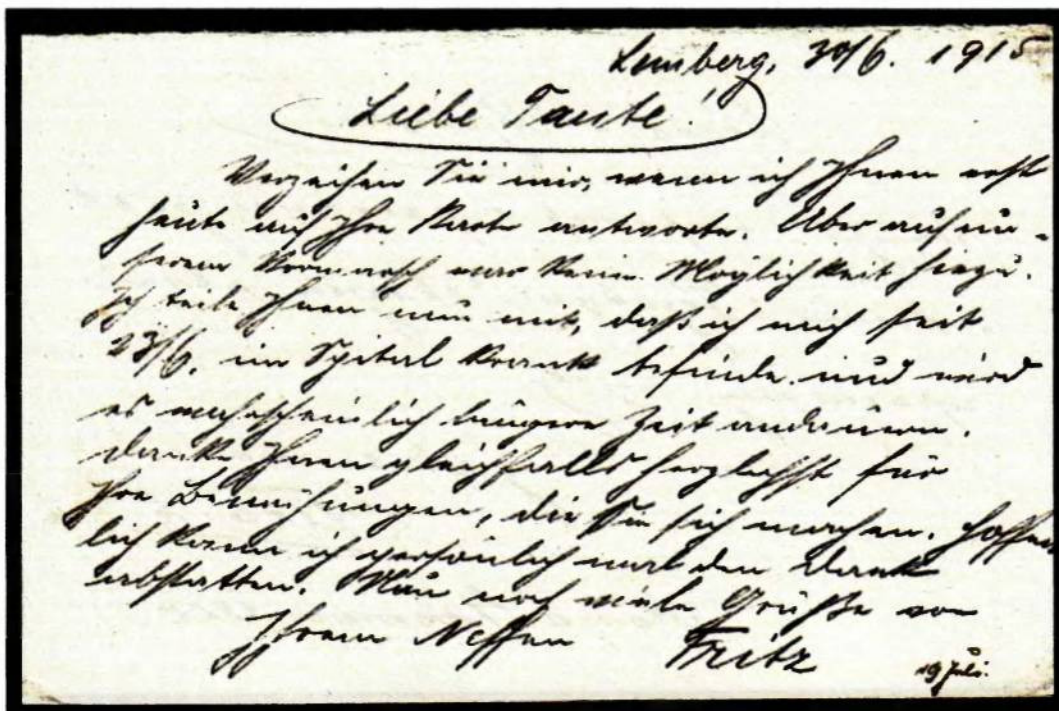 Lemberg, 30/6. 1915
Liebe Tante!
Verzeihen Sie mir, wenn ich Ihnen erst
heute auf Ihre Karte antworte. Aber auf un-
serem Vormarsch war keine Möglichkeit hiezu.
Ich teile Ihnen nun mit, daß ich mich seit
23/6. im Spital krank befinde und wird
es wahrscheinlich längere Zeit andauern.
Danke Ihnen gleichfalls herzlichst für
Ihre Bemühungen, die Sie sich machen. Hoffent
lich kann ich persönlich mal den Dank
abstatten. Nun noch viele Grüße von
Ihrem Neffen Fritz
19 Juli.